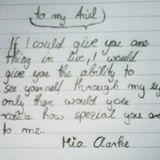 to my Ariel
If I could give you one
thing in live, I would
give you the ability to
see yourself through my ey
only than would you
realize how special you are
to me.
Mia Clarke